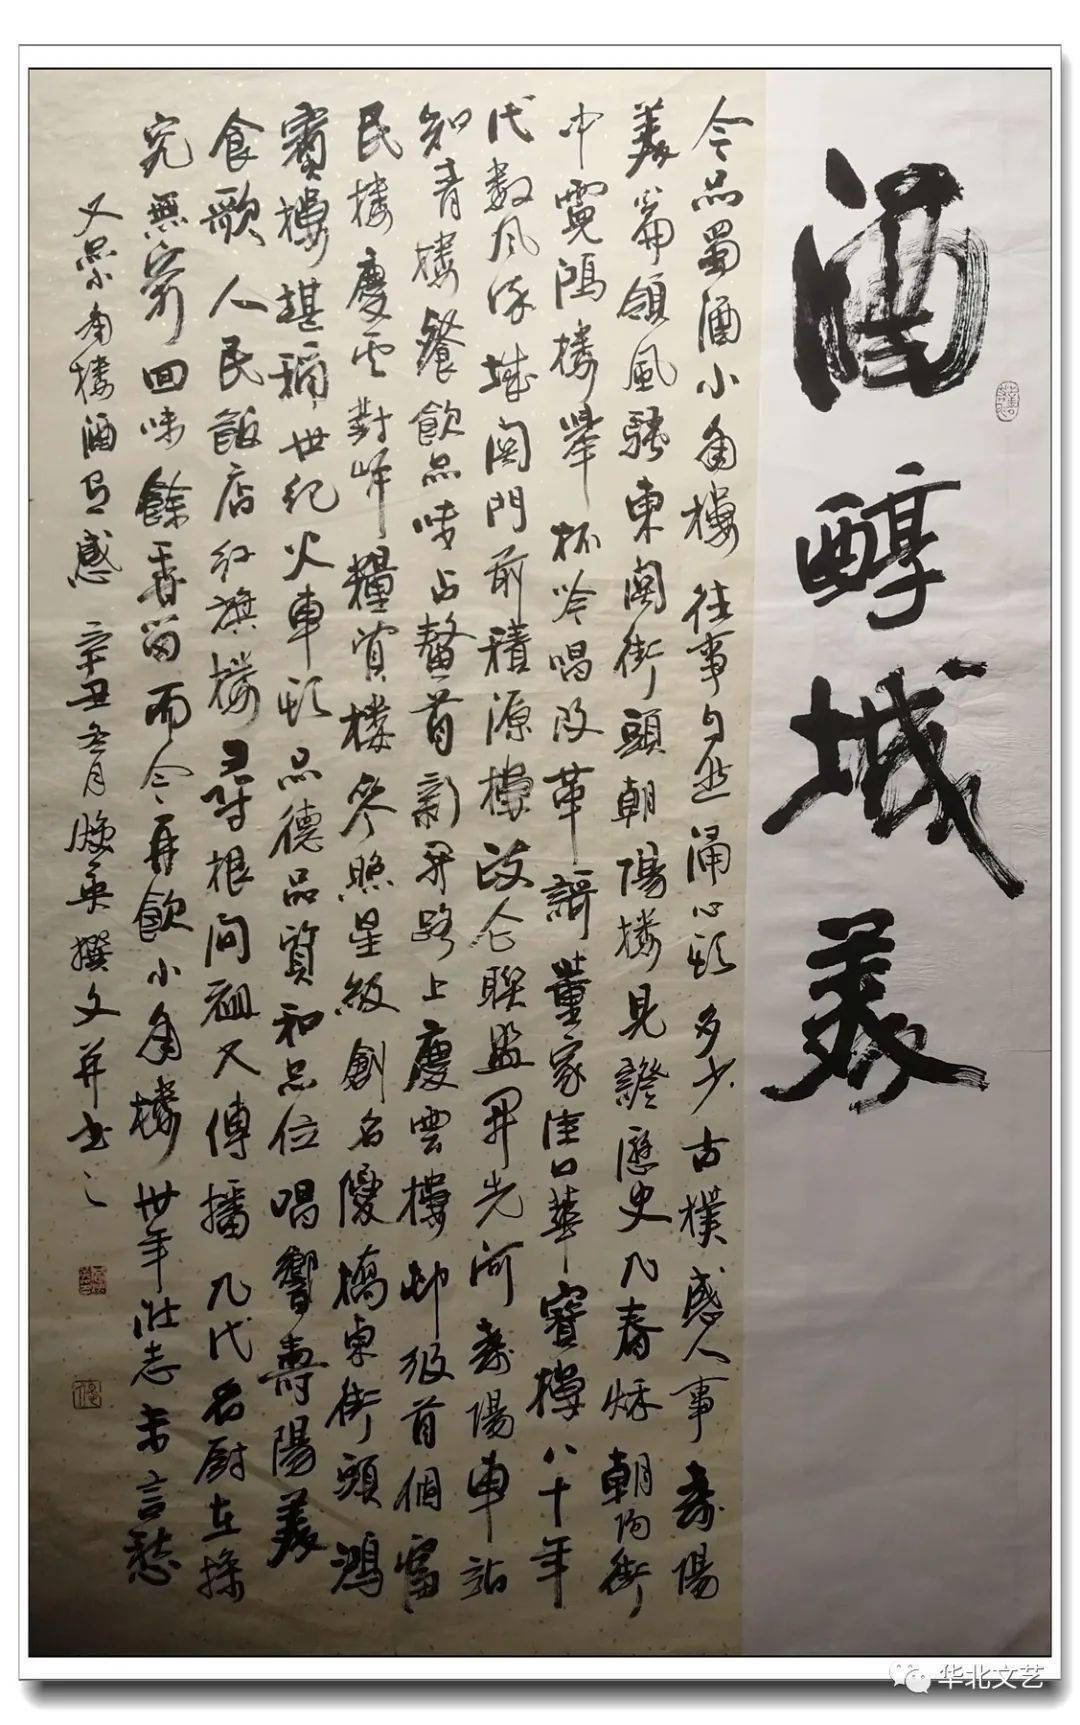 酒醇城美
今品蜀酒小角樓往事勾起涌心頭多少古樸感人事壽陽
美篇領風騷東閣街頭朝陽楼見證歷史几春秌朝陽街
中霓鴻樓舉杯吟唱改革謌董家佳口華賓樓八十年
代数风流城関門前積源樓政仑聯盟開先河壽陽車站
知青樓餐飲品味占鳌首新開路上慶雲樓邨級首個富
民楼慶雲對峙糧貿楼参照星級創名優橋東街頭鴻
賓樓堪稱世纪火車頭品德品質和品位唱響壽陽美
食歌人民飯店红旗楼尋根问祖又傳播几代名厨在操
究無窮回味餘香留而今再飲小角樓卅年壮志未言愁
又品小角楼酒有感辛丑冬月 英撰文并书之
华北文艺